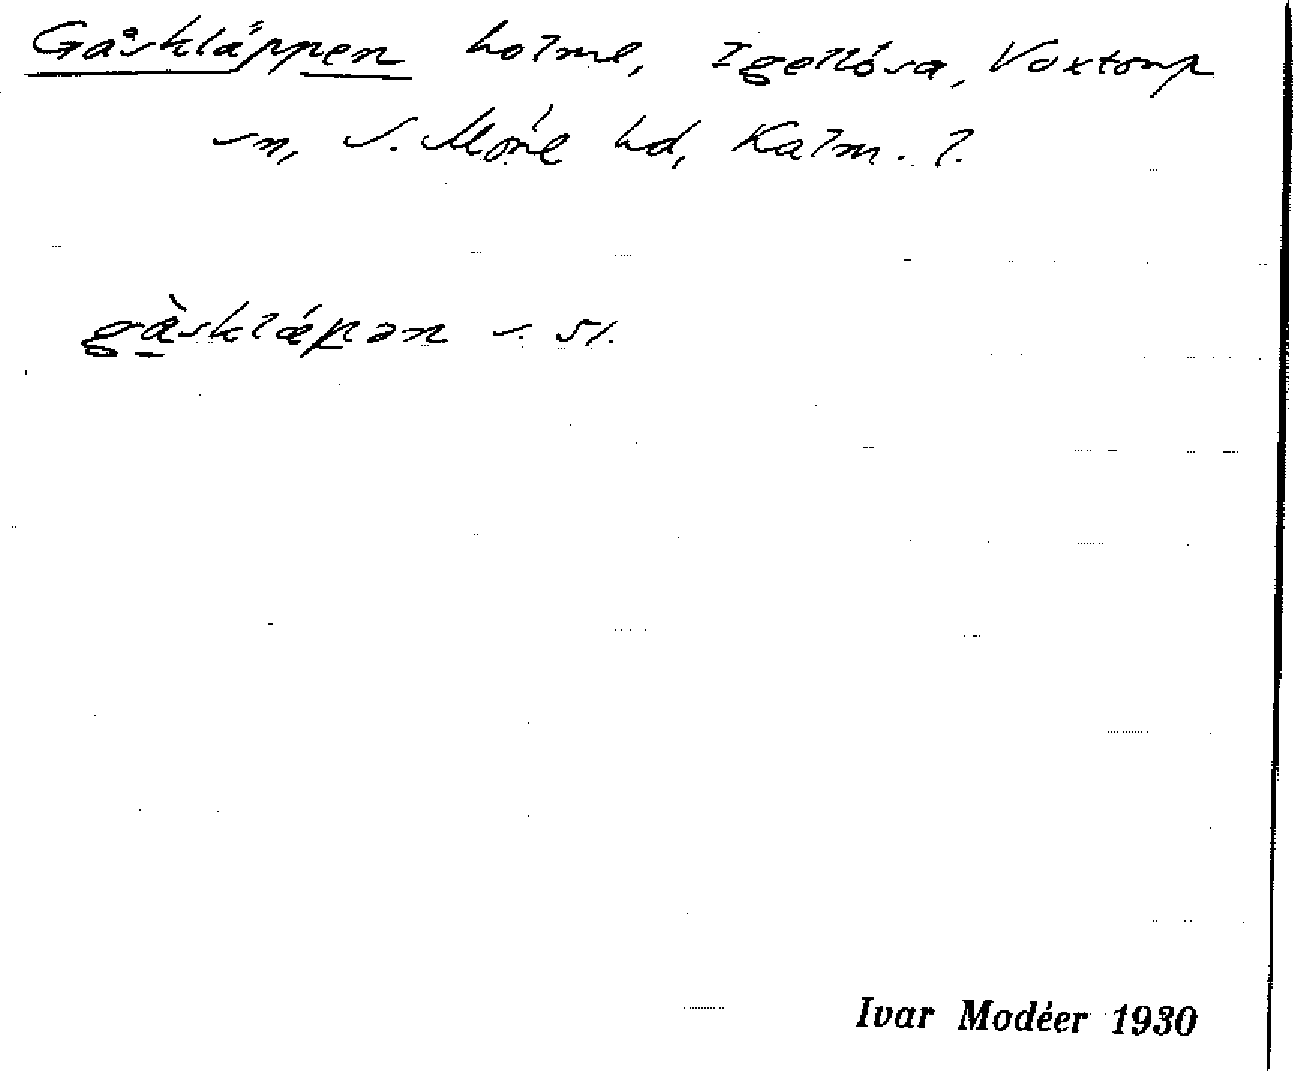 Gåskläppen holme, Igellösa, Voxtorp
sn, S. Möre hd, Kalm. l.
gàskläpən s. 51.
Ivar Modéer 1930